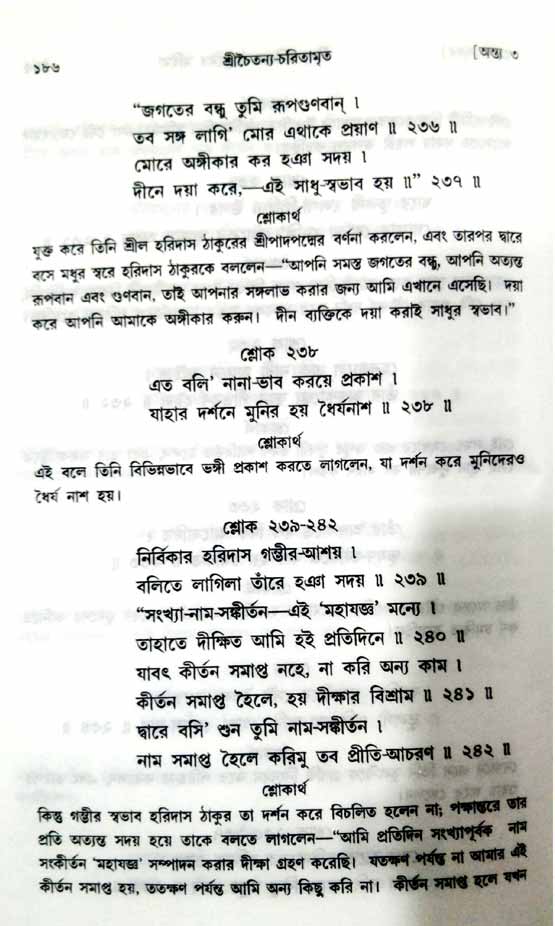 ১৮৬
শ্রীচৈতন্য-চরিতামৃত
[অন্ত্য ৩
“জগতের বন্ধু তুমি রূপগুণবান্ ।
তব সঙ্গ লাগি’ মোর এথাকে প্রয়াণ ॥ ২৩৬ ॥
মোরে অঙ্গীকার কর হঞা সদয় ।
দীনে দয়া করে,—এই সাধু-স্বভাব হয় ॥” ২৩৭ ॥
শ্লোকার্থ
যুক্ত করে তিনি শ্রীল হরিদাস ঠাকুরের শ্রীপাদপদ্মের বর্ণনা করলেন, এবং তারপর দ্বারে
বসে মধুর স্বরে হরিদাস ঠাকুরকে বললেন—“আপনি সমস্ত জগতের বন্ধু, আপনি অত্যন্ত
রূপবান এবং গুণবান, তাই আপনার সঙ্গলাভ করার জন্য আমি এখানে এসেছি। দয়া
করে আপনি আমাকে অঙ্গীকার করুন। দীন ব্যক্তিকে দয়া করাই সাধুর স্বভাব।”
শ্লোক ২৩৮
এত বলি’ নানা-ভাব করয়ে প্রকাশ ।
যাহার দর্শনে মুনির হয় ধৈর্যনাশ ॥ ২৩৮ ॥
শ্লোকার্থ
এই বলে তিনি বিভিন্নভাবে ভঙ্গী প্রকাশ করতে লাগলেন, যা দর্শন করে মুনিদেরও
ধৈর্য নাশ হয়।
শ্লোক ২৩৯-২৪২
নির্বিকার হরিদাস গম্ভীর-আশয় ।
বলিতে লাগিলা তাঁরে হঞা সদয় ॥ ২৩৯ ॥
“সংখ্যা-নাম-সঙ্কীর্তন—এই ‘মহাযজ্ঞ’ মন্যে ।
তাহাতে দীক্ষিত আমি হই প্রতিদিনে ॥ ২৪০ ॥
যাবৎ কীর্তন সমাপ্ত নহে, না করি অন্য কাম ।
কীর্তন সমাপ্ত হৈলে, হয় দীক্ষার বিশ্রাম ॥ ২৪১ ॥
দ্বারে বসি’ শুন তুমি নাম-সঙ্কীর্তন ।
নাম সমাপ্ত হৈলে করিমু তব প্রীতি-আচরণ ॥ ২৪২ ॥
শ্লোকার্থ
কিন্তু গম্ভীর স্বভাব হরিদাস ঠাকুর তা দর্শন করে বিচলিত হলেন না; পক্ষান্তরে তার
প্রতি অত্যন্ত সদয় হয়ে তাকে বলতে লাগলেন—“আমি প্রতিদিন সংখ্যাপূর্বক নাম
সংকীর্তন ‘মহাযজ্ঞ’ সম্পাদন করার দীক্ষা গ্রহণ করেছি। যতক্ষণ পর্যন্ত না আমার এই
কীর্তন সমাপ্ত হয়, ততক্ষণ পর্যন্ত আমি অন্য কিছু করি না। কীর্তন সমাপ্ত হলে যখন